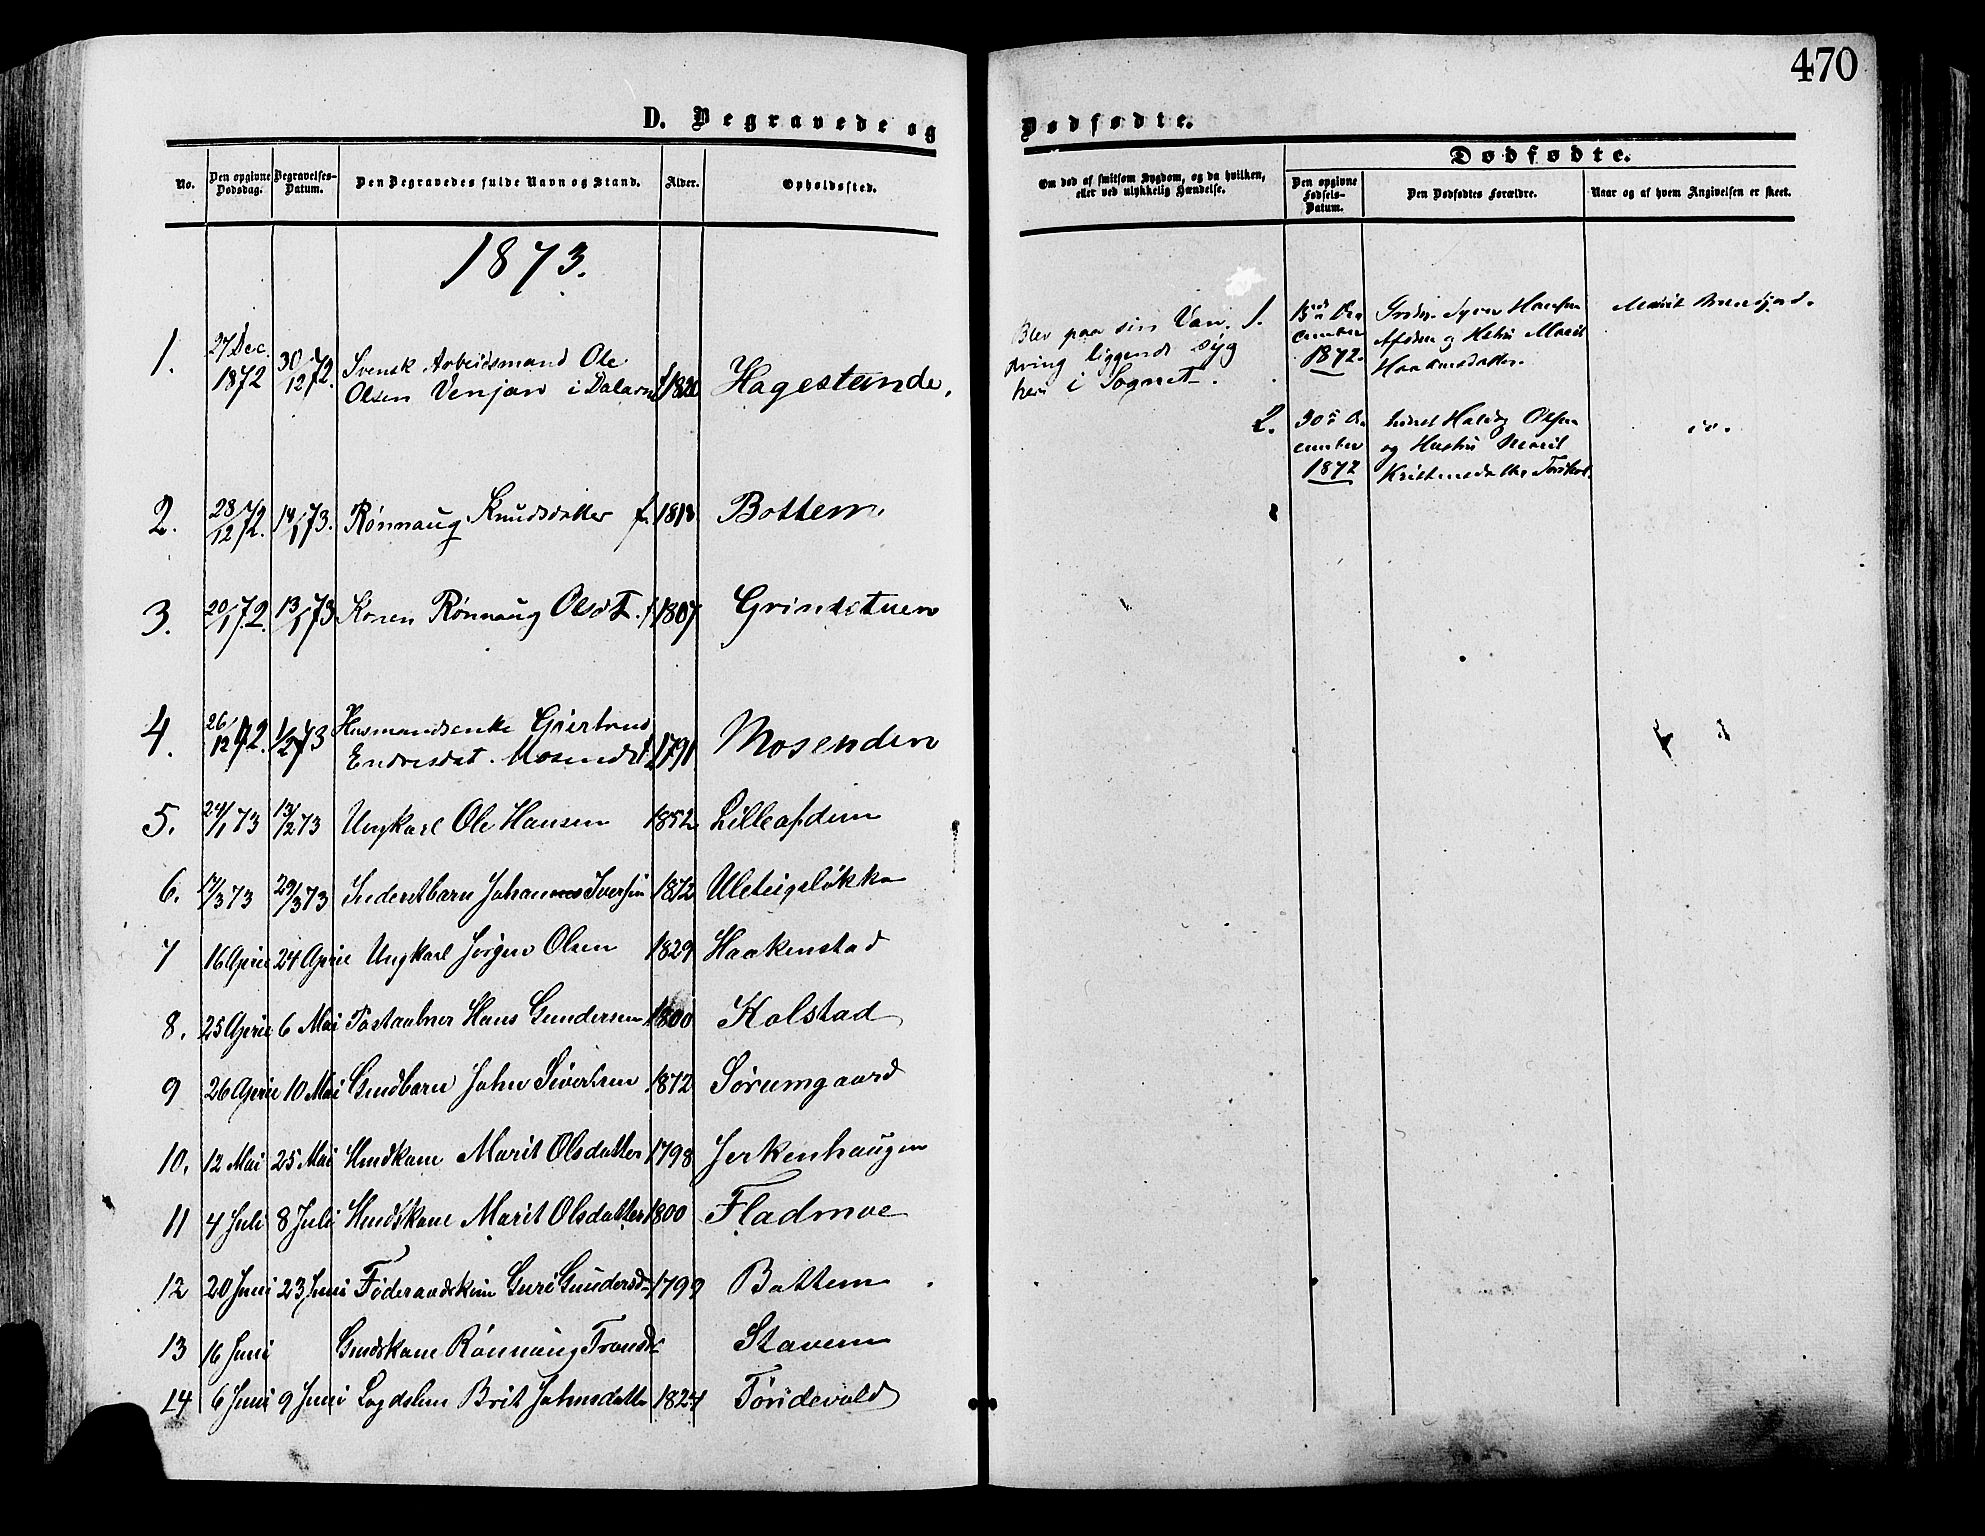 470
D. Begravede og
Dødfødte.
No.
Den opgivne Dødsdag.
Begravelses-Datum.
Den Begravedes fulde Navn og Stand.
Alder.
Opholdssted.
Om død af smitsom Sygdom, og da hvilken,
eller ved ulykkelig Hændelse.
Dødfødte.
Den opgivne Fødsels-Datum.
Den Dødfødtes Forældre.
Naar og af hvem Angivelsen er skeet.
1873.
1. 27 Dec. 1872 30/12 72. Svensk Arbeidsmand Ole
Olsen Venjan i Dalarne f 1820 Hagestande.
Blev paa sin Van-
dring liggende syg
her i Sognet.
1. December 1872. Syver Hansen
og Marit
Marit
2. 30 December 1872 Olsen
og Hustru Marit
io.
2. 28/12 72. 14/1 73. Rønnaug Knudsdatter f. 1813 Bottem.
3. 20/1 72. 13/1 73 Konen Rønnaug Olsdt. f 1807 Grindstuen
4. 26/12 72. 1/2 73 Husmandsenke Gjertrud
Endresdat. Mosend f 1791 Mosenden
5. 24/1 73 13/2 73 Ungkarl Ole Hansen 1852 Lilleafdem
6. 17/3 73 29/3 73 Inderstbarn Johannes Iversen 1872 Uleteigsløkka
7 16 April 24 April Ungkarl Jørgen Olsen 1829 Haakenstad
8. 25 April 6 Mai Hans Gundersen 1800 Kolstad
9 26 April 10 Mai Gmdbarn John Sivertsen 1872 Sørumgaard
10. 12 Mai 25 Mai Hmdkone Marit Olsdatter 1798 Jerkenhaugen
11 4 Juli 8 Juli Hmdskone Marit Olsdatter 1800 Fladmoe
12 20 Juni 23 Juni Føderaadskone Guri Gundersd. 1799 Bottem
13 16 Juni Gmdskone Rønnaug Stavem
14 6 Juni 9 Juni Brit Johnsdatter 1824 Toridevold